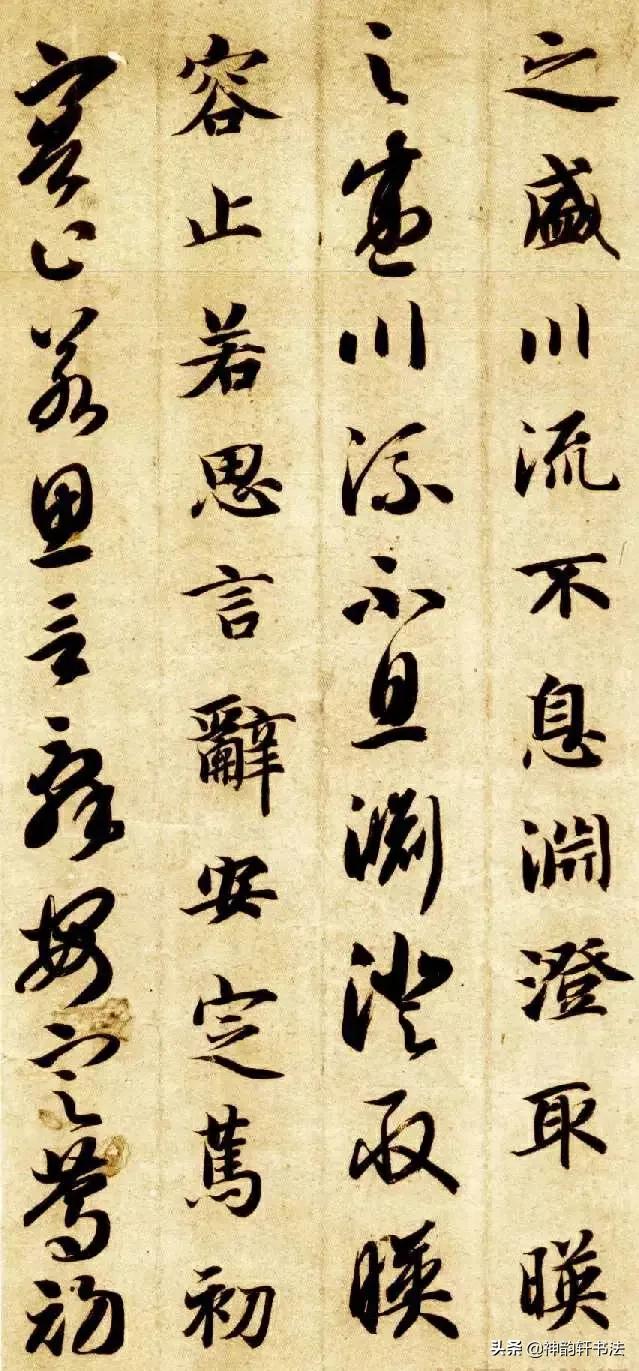 之盛川流不息淵澄取暎
之盛川流不息淵澄取暎
容止若思言辭安定篤初
容止若思言辭安定篤初
头条 @神韵轩书法